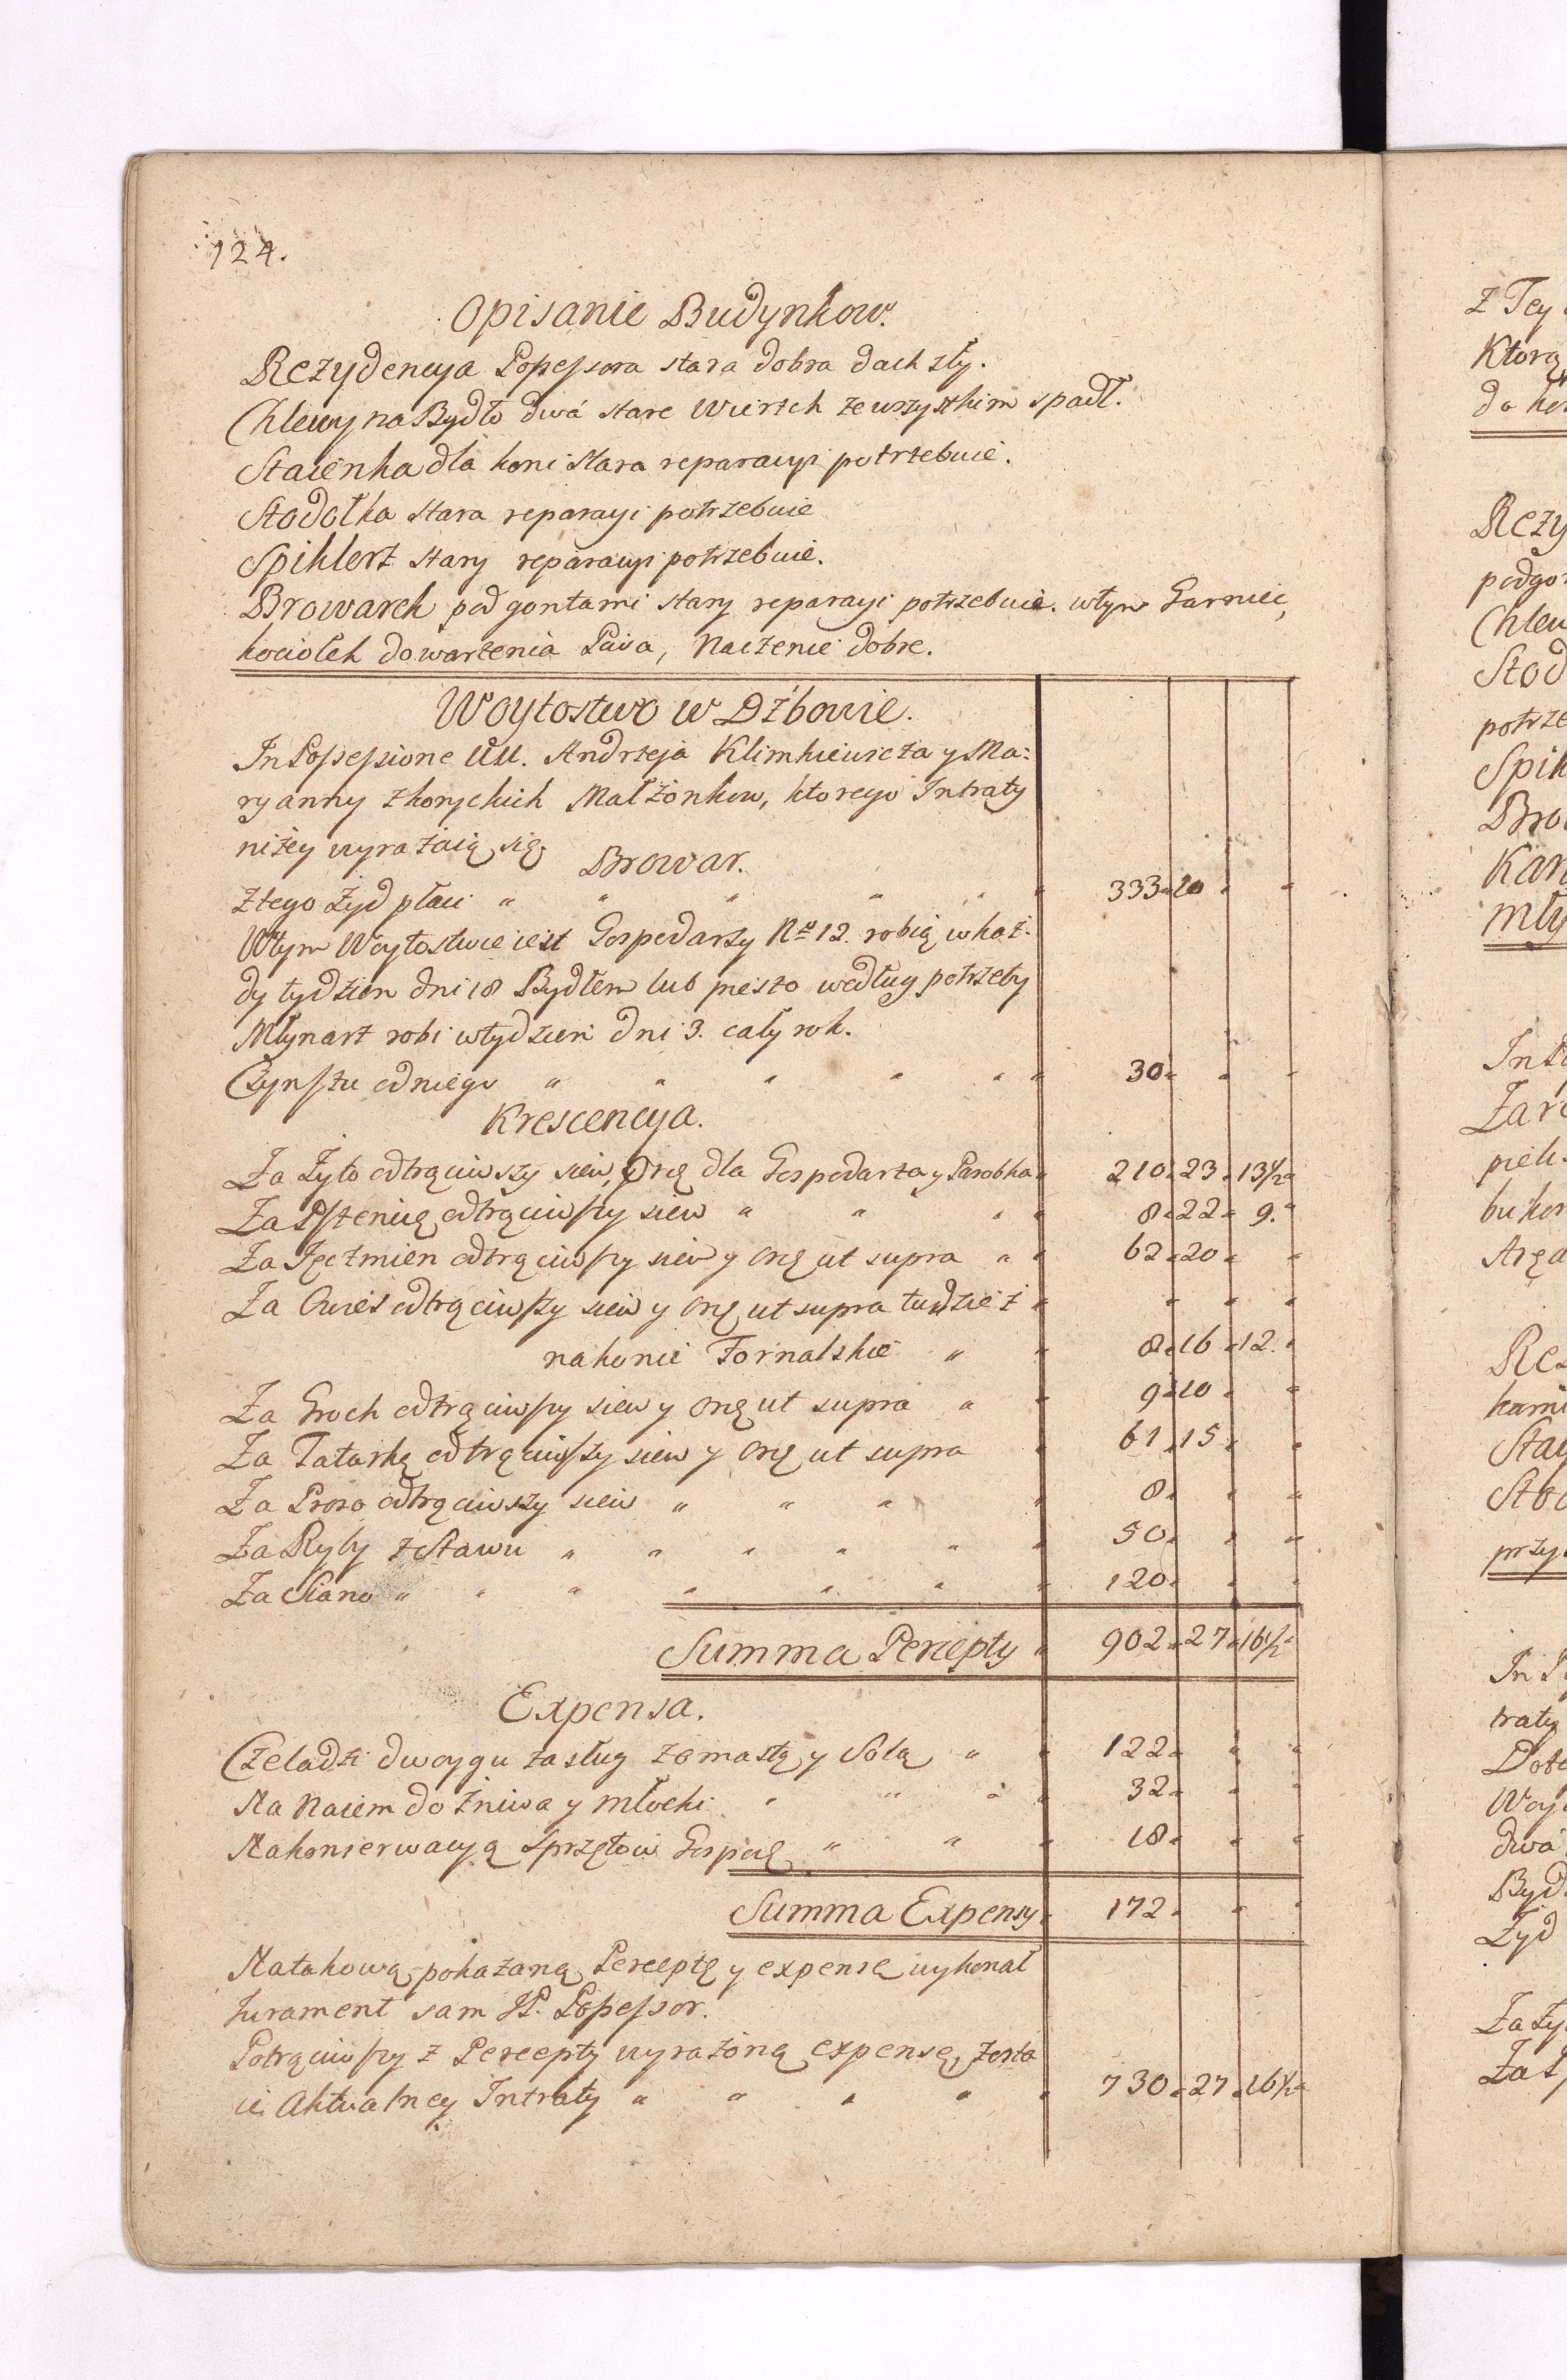 124.
Opisanie Budynkow.
Rezydencya Possessora stara dobra dach zły.
Chlewy na Bydło dwá stare Wierzch ze wszystkim spadł.
Staienka dla koni stara reparacyi potrzebuie.
Stodołka stara reparacyi potrzebuie
Spiklerz stary reparacyi potrzebuie.
Browarek pod gontami stary reparacyi potrzebuie. wtym Garniec,
kociołek do warzenia Piwa, Naczenie dobre.
Woytostwo w Dźbowie.
In Possessione UU. Andrzeja Klimkiewicza y Ma:
ryanny z korychich Małżonkow, ktorego Intraty
niżey wyrażaią się.
Browar.
Z tego Żyd płaci " " " " " " 333 " 10 " "
Wtym Woytostwie iest Gospodarzy No 12. robią w każ-
dy tydzien dni 18 Bydłem lub pieszo według potrzeby
Młynarz robi w tydzien dni 3. cały rok.
Czynszu od niego " " " " " " 30 " " "
Krescencya.
Za Żyto odtrąciwszy siew, Orę dla Gospodarza y Parobka " 210 " 23 " 13 1/2 "
Za Pszenicę odtrąciwszy siew " " " " 8 " 22 " 9. "
Za Jęczmien odtrąciwszy siew y orę ut supra " " 62 " 20 " "
Za Owies odtrąciwszy siew y orę ut supra tudzież " " " "
na konie Fornalskie " " 8 " 16 " 12. "
Za Groch odtrąciwszy siew y orę ut supra " " 9 " 10 " "
Za Tatarkę odtrąciwszy siew y orę ut supra " 61 " 15 " "
Za Proso odtrąciwszy siew " " " " 8 " " "
Za Ryby z Stawu " " " " " " 50 " " "
Za Siano " " " " " " " 120 " " "
Summa Percepty " 902 " 27 " 16 1/2 "
Expensa.
Czeladzi dwoygu zasług z omastą y Solą " " 122 " " "
Na Naiem do żniwa y młocki " " " " 32 " " "
Na konserwacyą Sprzętow Gospod " " " 18 " " "
Summa Expensy " 172 " " "
Na takową pokazaną Perceptę y expensę wykonał
Jurament sam JP. Possessor.
Potrąciwszy z Percepty wyrażoną expensę, zosta
ie Aktualney Intraty " " " " " 730 " 27 " 16 1/2 "
Z Tey
Ktorą
Rezy
podgo
Chlew
Stod
potrze
Spik
Bro
Kar
Mły
Za Ży